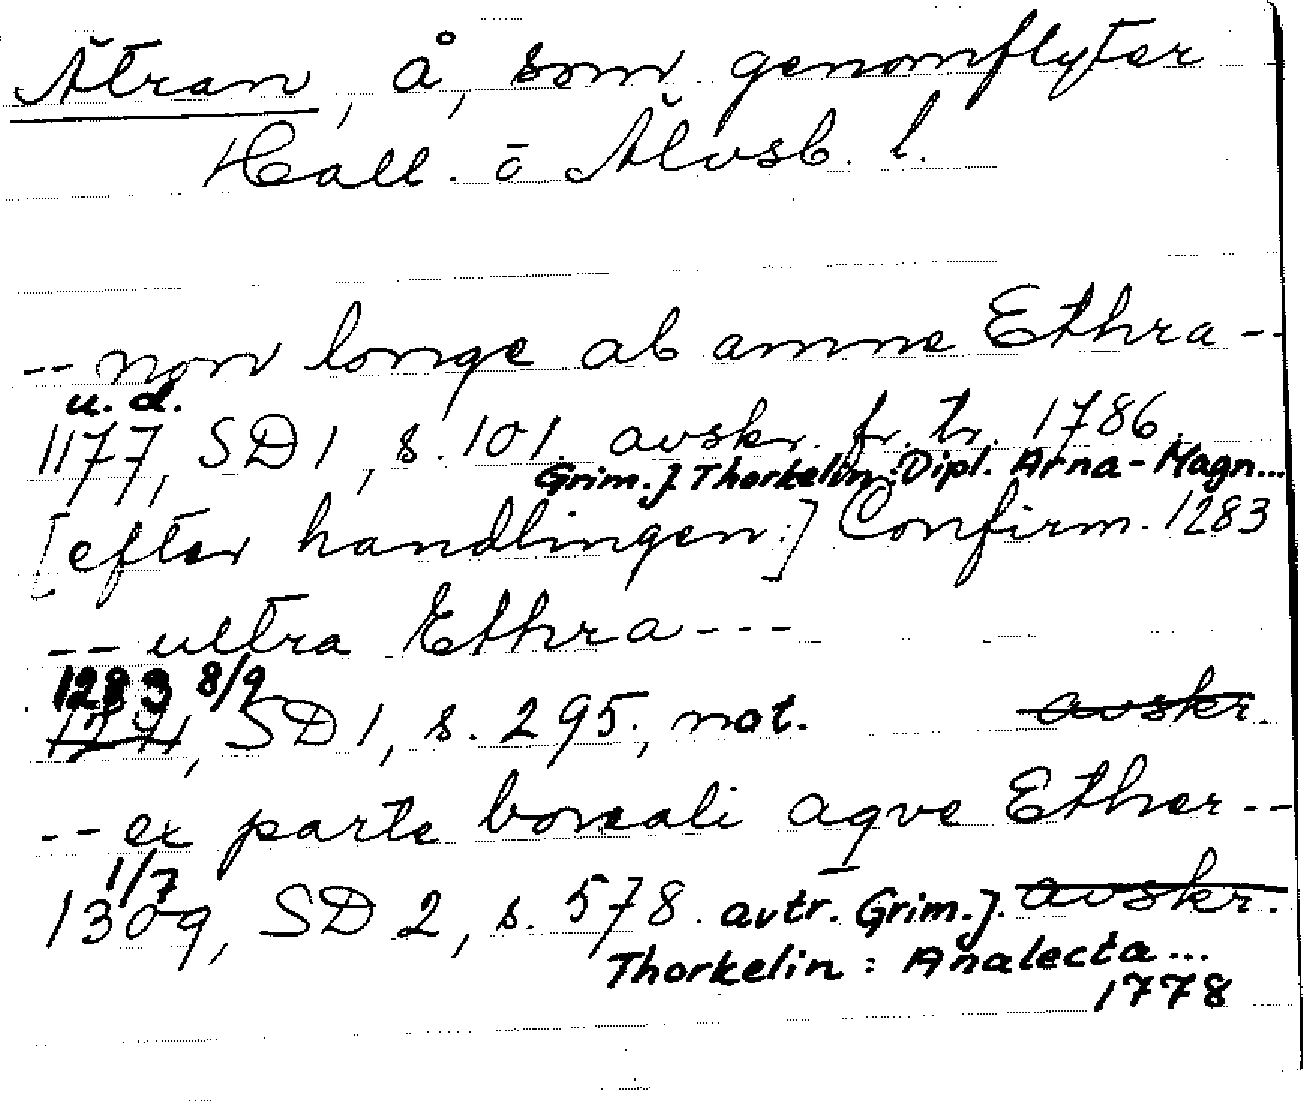 Ätran, å, som genomflyter
Hall. o Älvsb. l.
-- non longe ab amne Ethra --
u. d.
1177, SD 1, s. 101. avskr. fr. tr. 1786.
Grim. J. Thorkelin: Dipl. Arna-Magn...
[efter handlingen:] Confirm. 1283
-- ultra Ethra ---
1283 8/9
SD 1, s. 295, not. avskr.
-- ex parte boreali aqve Ether --
1/7
1309, SD 2, s. 578. avtr. Grim. J. avskr.
Thorkelin: Analecta...
1778